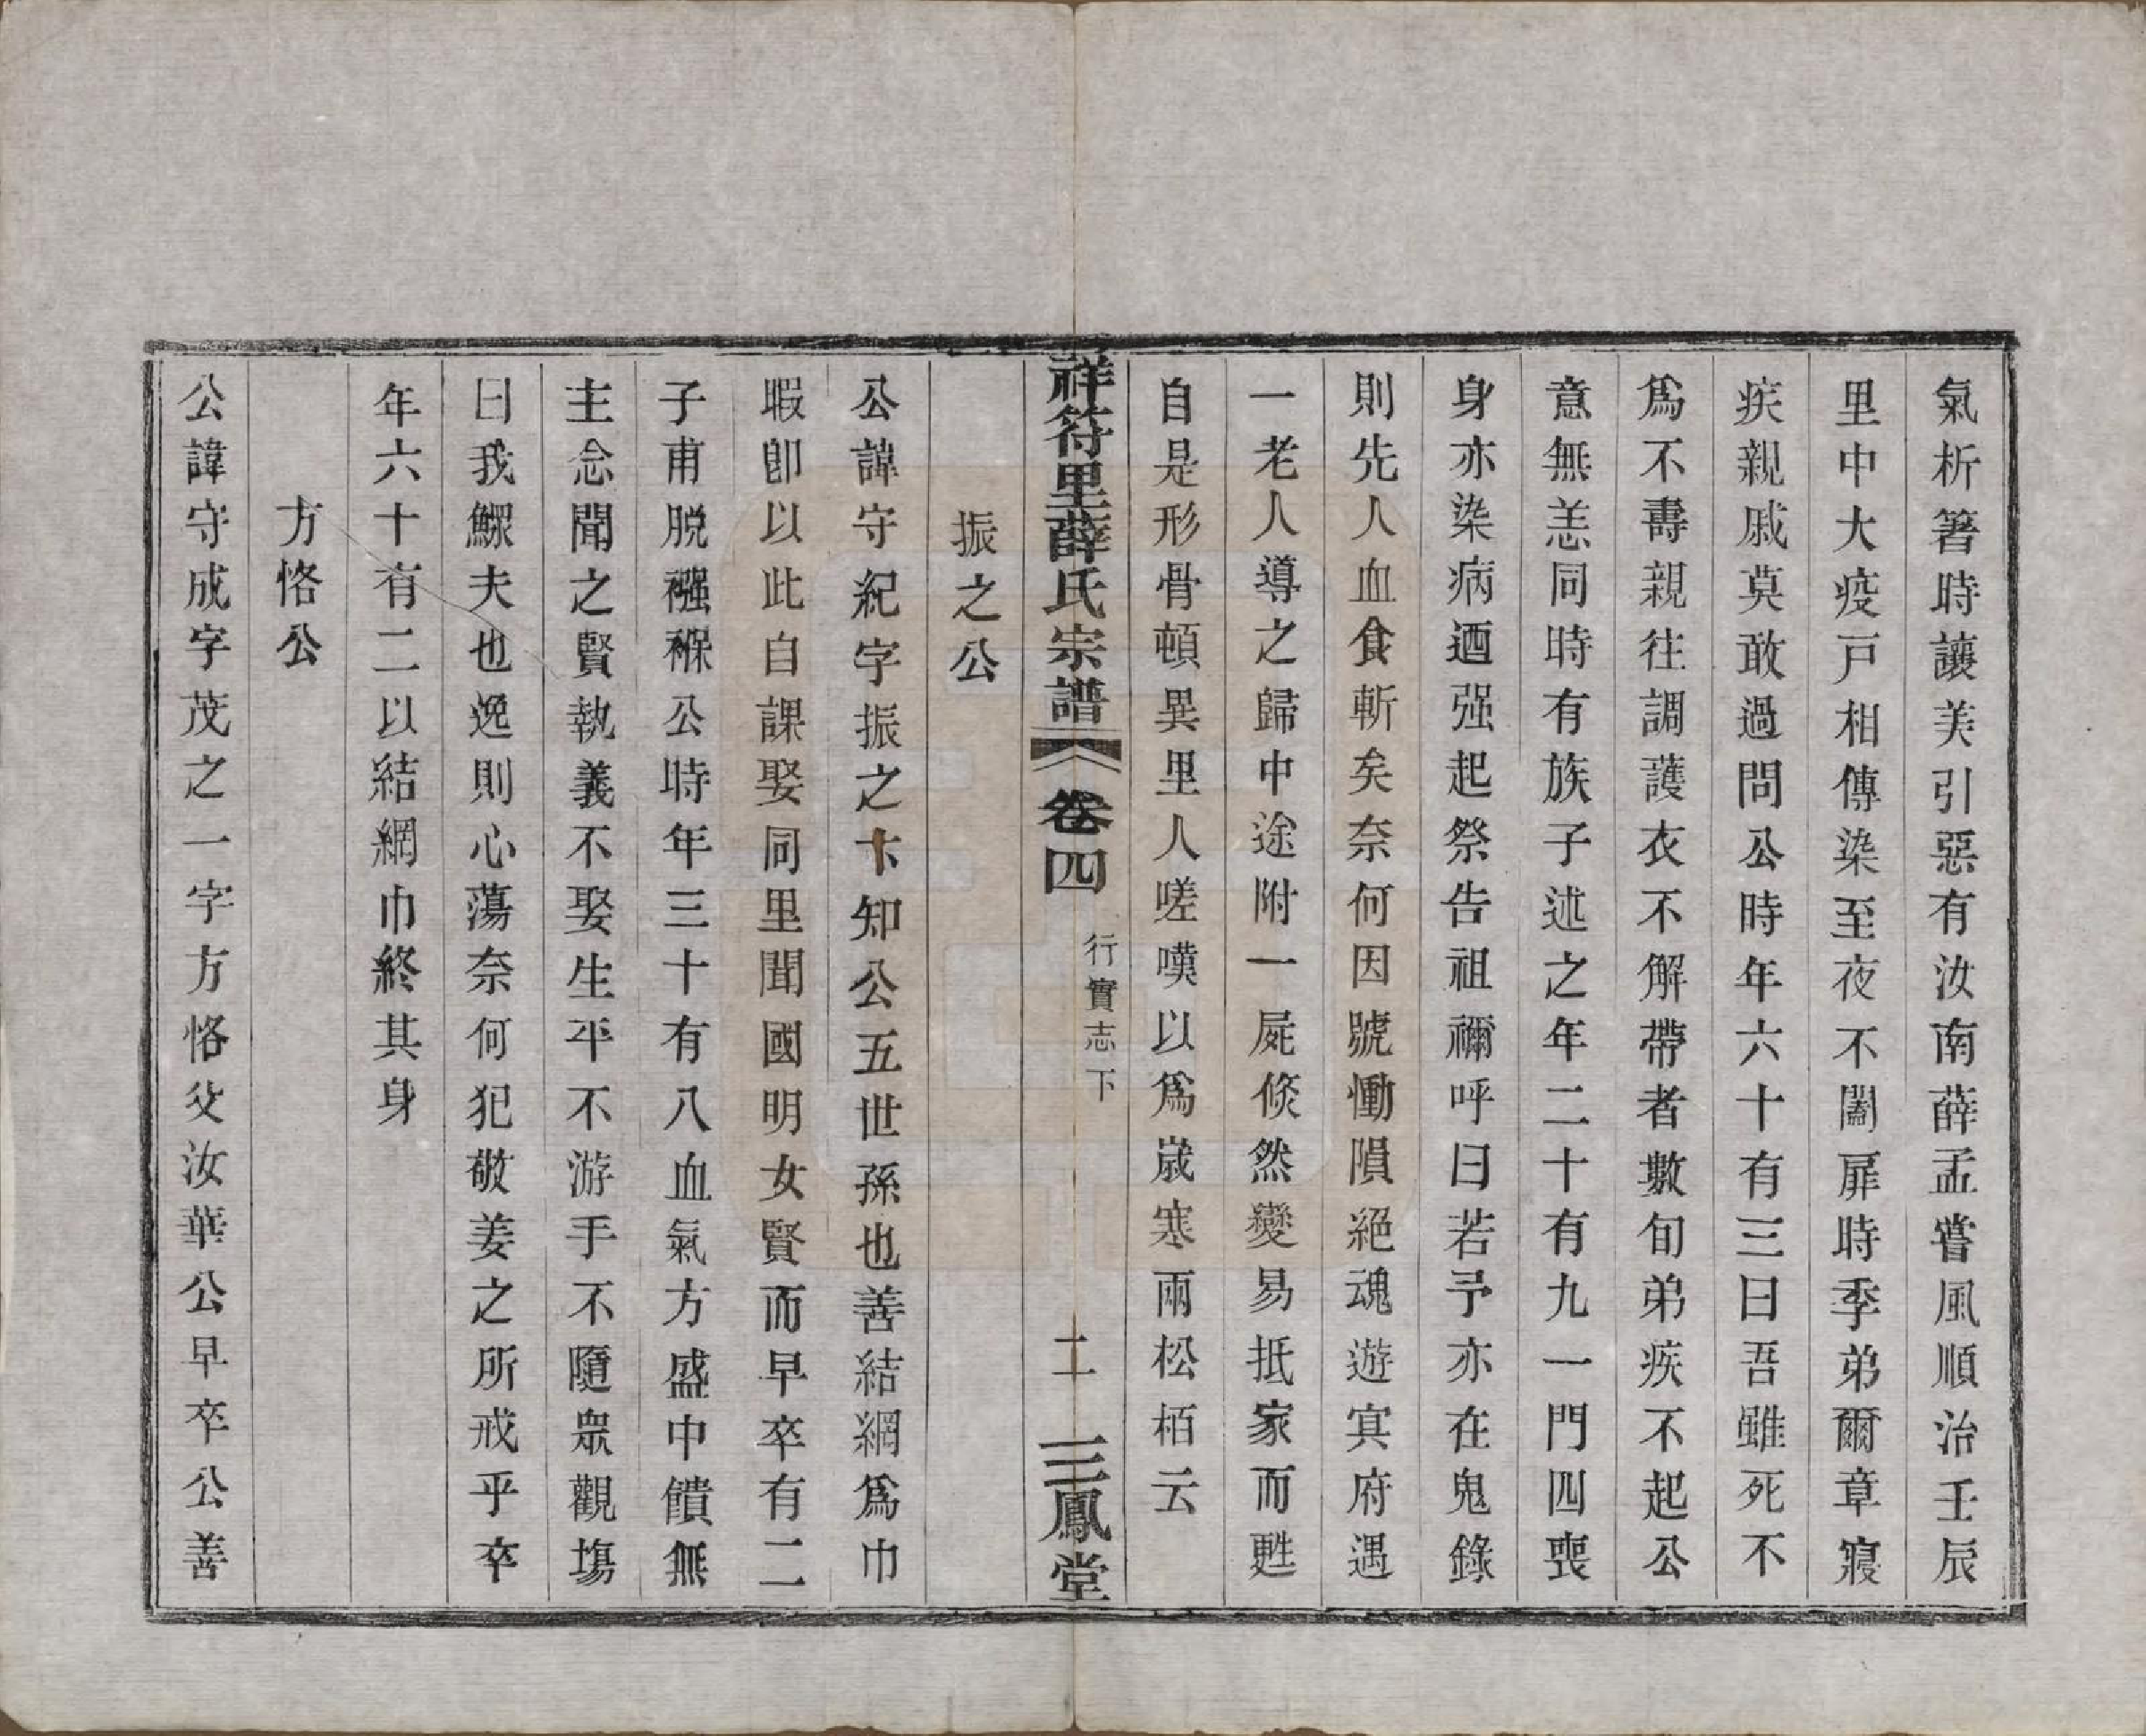 氣析箸時讓美引惡有汝南薛孟嘗風順治壬辰
里中大疫戸相傳染至夜不闔扉時季弟爾章寢
疾親戚莫敢過問公時年六十有三曰吾雖死不
爲不壽親往調護衣不解帶者數旬弟疾不起公
意無恙同時有族子述之年二十有九一門四喪
身亦染病迺强起祭告祖禰呼曰若予亦在鬼錄
則先人血食斬矣奈何因號慟隕絕魂遊冥府遇
一老人導之歸中途附一屍倐然變易抵家而甦
自是形骨頓異里人嗟嘆以爲歲寒兩松栢云
祥符里薛氏宗譜 卷四 行實志下 二 三鳳堂
振之公
公諱守紀字振之卞知公五世孫也善結網爲巾
暇卽以此自課娶同里聞國明女賢而早卒有二
子甫脱襁褓公時年三十有八血氣方盛中饋無
主念聞之賢執義不娶生平不游手不隨衆觀塲
曰我鰥夫也逸則心蕩奈何犯敬姜之所戒乎卒
年六十有二以結網巾終其身
方恪公
公諱守成字茂之一字方恪父汝華公早卒公善